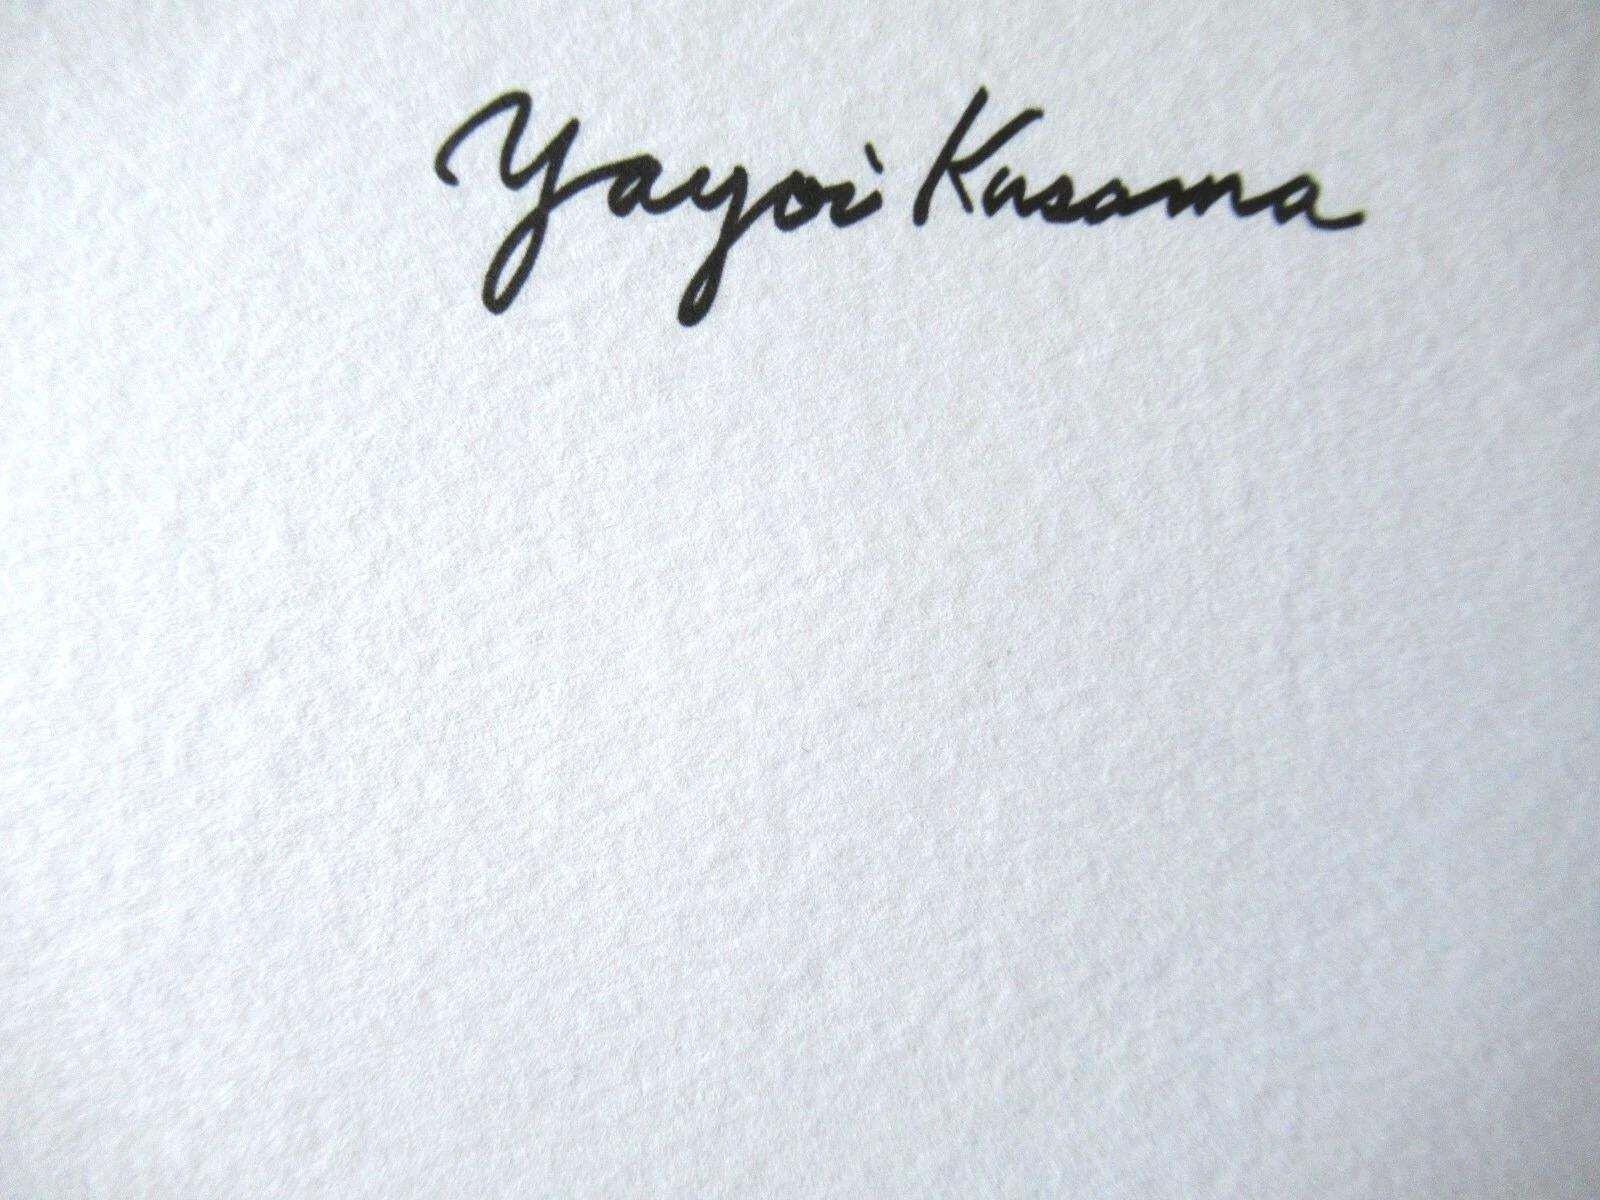 Yayoi Kusama